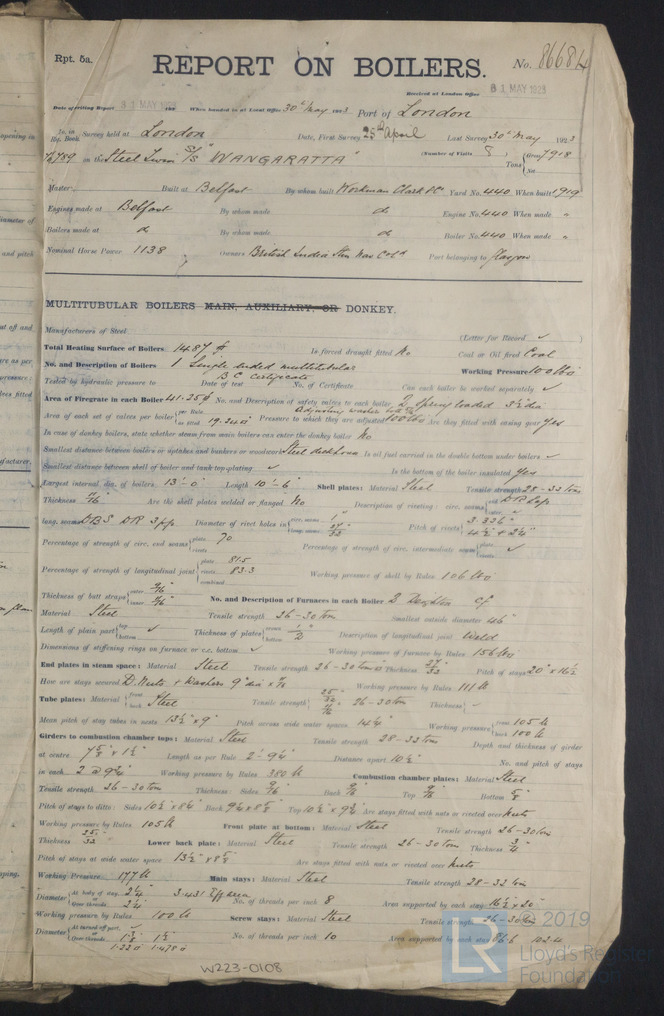 Rpt. 5a.
REPORT ON BOILERS.
No. 86684
Received at London Office
31 MAY 1923
Date of writing Report 31 MAY 1923 When handed in at Local Office 30th May 1923 Port of London
No. in Reg. Book. Survey held at London Date, First Survey 25th April Last Survey 30th May 1923
72789 on the Steel Twin S/S "WANGARATTA" (Number of Visits 5) Tons Gross 7918 Net
Master Built at Belfast By whom built Workman Clark & Co Yard No. 440 When built 1919
Engines made at Belfast By whom made do Engine No. 440 When made "
Boilers made at do By whom made do Boiler No. 440 When made "
Nominal Horse Power 1138 Owners British India Stm Nav Co Ld Port belonging to Glasgow
MULTITUBULAR BOILERS MAIN, AUXILIARY, OR DONKEY.
Manufacturers of Steel (Letter for Record ✓ )
Total Heating Surface of Boilers 1487 Is forced draught fitted No Coal or Oil fired Coal
No. and Description of Boilers 1 Single ended multitubular Working Pressure 100 lbs
Tested by hydraulic pressure to B C Certificate Date of test No. of Certificate Can each boiler be worked separately ✓
Area of Firegrate in each Boiler 41.25 No. and Description of safety valves to each boiler 2 Spring loaded 3½ dia
Area of each set of valves per boiler per Rule as fitted 19.24 Pressure to which they are adjusted 100 lbs Are they fitted with easing gear Yes
In case of donkey boilers, state whether steam from main boilers can enter the donkey boiler No
Smallest distance between boilers or uptakes and bunkers or woodwork Steel deckhouse Is oil fuel carried in the double bottom under boilers ✓
Smallest distance between shell of boiler and tank top plating ✓ Is the bottom of the boiler insulated Yes
Largest internal dia. of boilers 13'-0" Length 10'-6" Shell plates: Material Steel Tensile strength 28-32 tons
Thickness Are the shell plates welded or flanged No Description of riveting: circ. seams end DR Lap inter ✓
long. seams DBS DR Diameter of rivet holes in circ. seams 1" long. seams Pitch of rivets 3.336"
Percentage of strength of circ. end seams plate 70 rivets Percentage of strength of circ. intermediate seam plate rivets ✓
Percentage of strength of longitudinal joint plate 81.5 rivets 83.3 combined Working pressure of shell by Rules 106 lbs
Thickness of butt straps outer 9/16" inner 9/16" No. and Description of Furnaces in each Boiler 2 Deighton cf
Material Steel Tensile strength 26-30 ton Smallest outside diameter 46"
Length of plain part top bottom ✓ Thickness of plates crown bottom ½" Description of longitudinal joint Weld
Dimensions of stiffening rings on furnace or c.c. bottom ✓ Working pressure of furnace by Rules 156 lbs
End plates in steam space: Material Steel Tensile strength 26-30 tons Thickness 27/32 Pitch of stays 20" x 16½
How are stays secured D. Nuts & Washers 9" dia Working pressure by Rules 111 lb
Tube plates: Material front back Steel Tensile strength 26-30 tons Thickness ✓
Mean pitch of stay tubes in nests 13½ x 9" Pitch across wide water spaces 14¼" Working pressure front 105 lb back 100 lb
Girders to combustion chamber tops: Material Steel Tensile strength 28-32 tons Depth and thickness of girder
at centre Length as per Rule 2'-9¼" Distance apart 10½" No. and pitch of stays
in each 2 @ 9¾" Working pressure by Rules 380 lb Combustion chamber plates: Material Steel
Tensile strength 26-30 tons Thickness: Sides 9/16" Back 9/16" Top 9/16" Bottom 5/8"
Pitch of stays to ditto: Sides Back Top Are stays fitted with nuts or riveted over Nuts
Working pressure by Rules 105 lb Front plate at bottom: Material Steel Tensile strength 26-30 tons
Thickness 25/32" Lower back plate: Material Steel Tensile strength 26-30 tons Thickness ¾"
Pitch of stays at wide water space Are stays fitted with nuts or riveted over Nuts
Working Pressure 177 lb Main stays: Material Steel Tensile strength 28-32 tons
Diameter At body of stay, 2¼" or Over threads 2¼" 3.431 Eff area No. of threads per inch 8 Area supported by each stay 16½" x 20"
Working pressure by Rules 100 lb Screw stays: Material Steel Tensile strength 26-30 tons
Diameter At turned off part, ✓ or Over threads 1⅜ 1½" No. of threads per inch 10 Area supported by each stay
W223-0108
LR © 2019
Lloyd's Register
Foundation